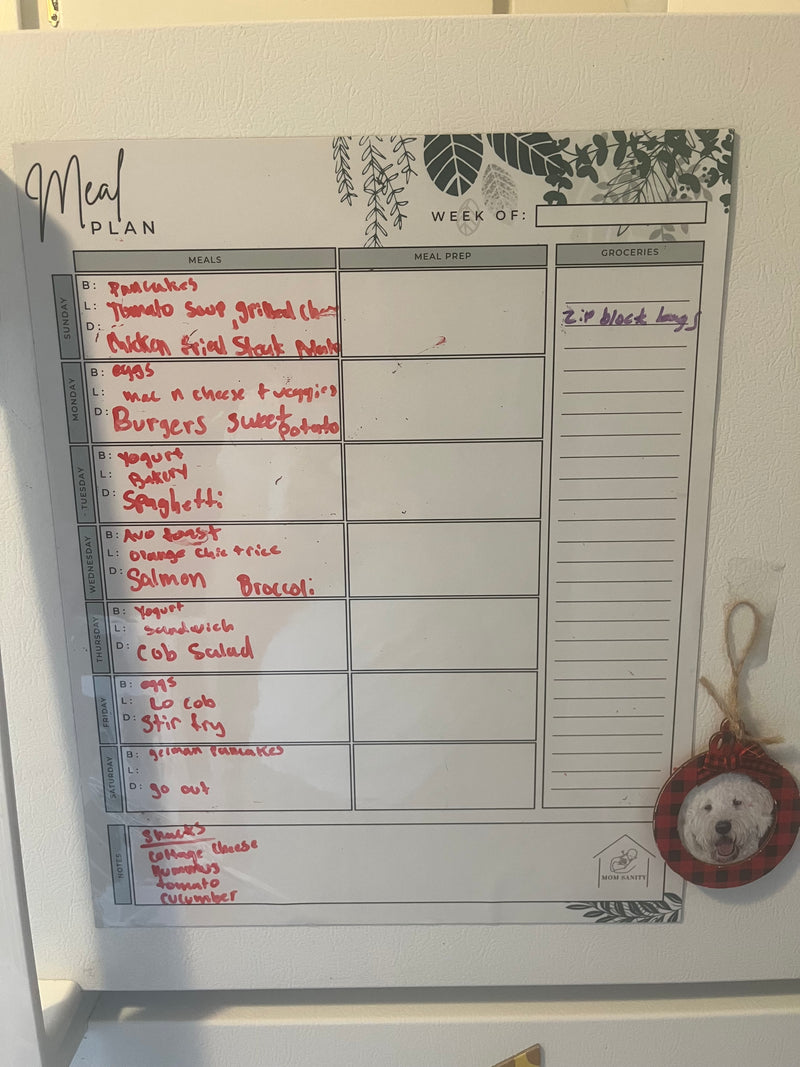 Meal
PLAN
WEEK OF:
MEALS
MEAL PREP
GROCERIES
SUNDAY
B: Pancakes
L: Tomato Soup, grilled Chees
D: Chicken fried Steak Potato
Zip block bangs
MONDAY
B: eggs
L: mac n cheese + veggies
D: Burgers sweet
potato
TUESDAY
B: Yogurt
L: Bakery
D: Spaghetti
WEDNESDAY
B: Avo toast
L: orange chic + rice
D: Salmon Broccoli
THURSDAY
B: Yogurt
L: sandwich
D: Cob Salad
FRIDAY
B: eggs
L: Lo cob
D: Stir fry
SATURDAY
B: german pancakes
L:
D: go out
NOTES
Snacks
Cottage cheese
Hummus
tomato
cucumber
MOM SANITY